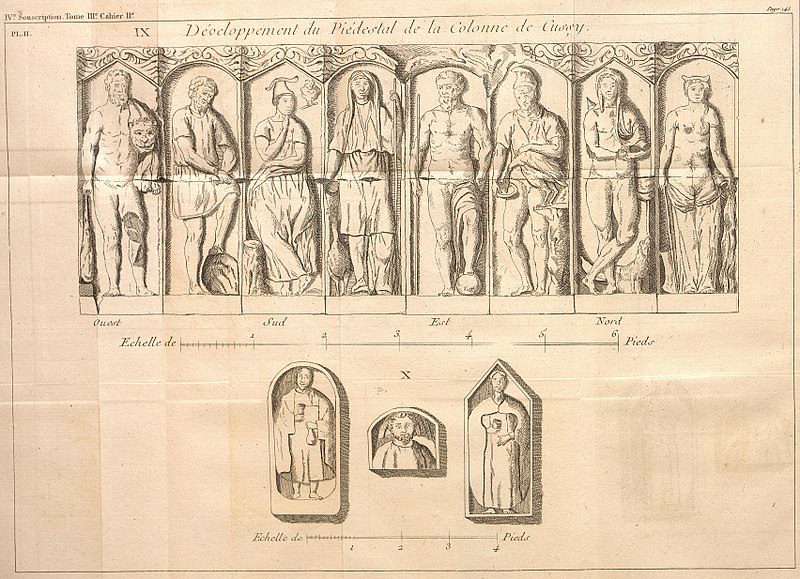 IVᵉ Souscription. Tome IIIᵉ Cahier IIᵉ
Page 145
PL. II.
IX Développement du Piédestal de la Colonne de Cussy.
Ouest Sud Est Nord
Echelle de 1 2 3 4 5 6 Pieds
X
Echelle de 1 2 3 4 Pieds